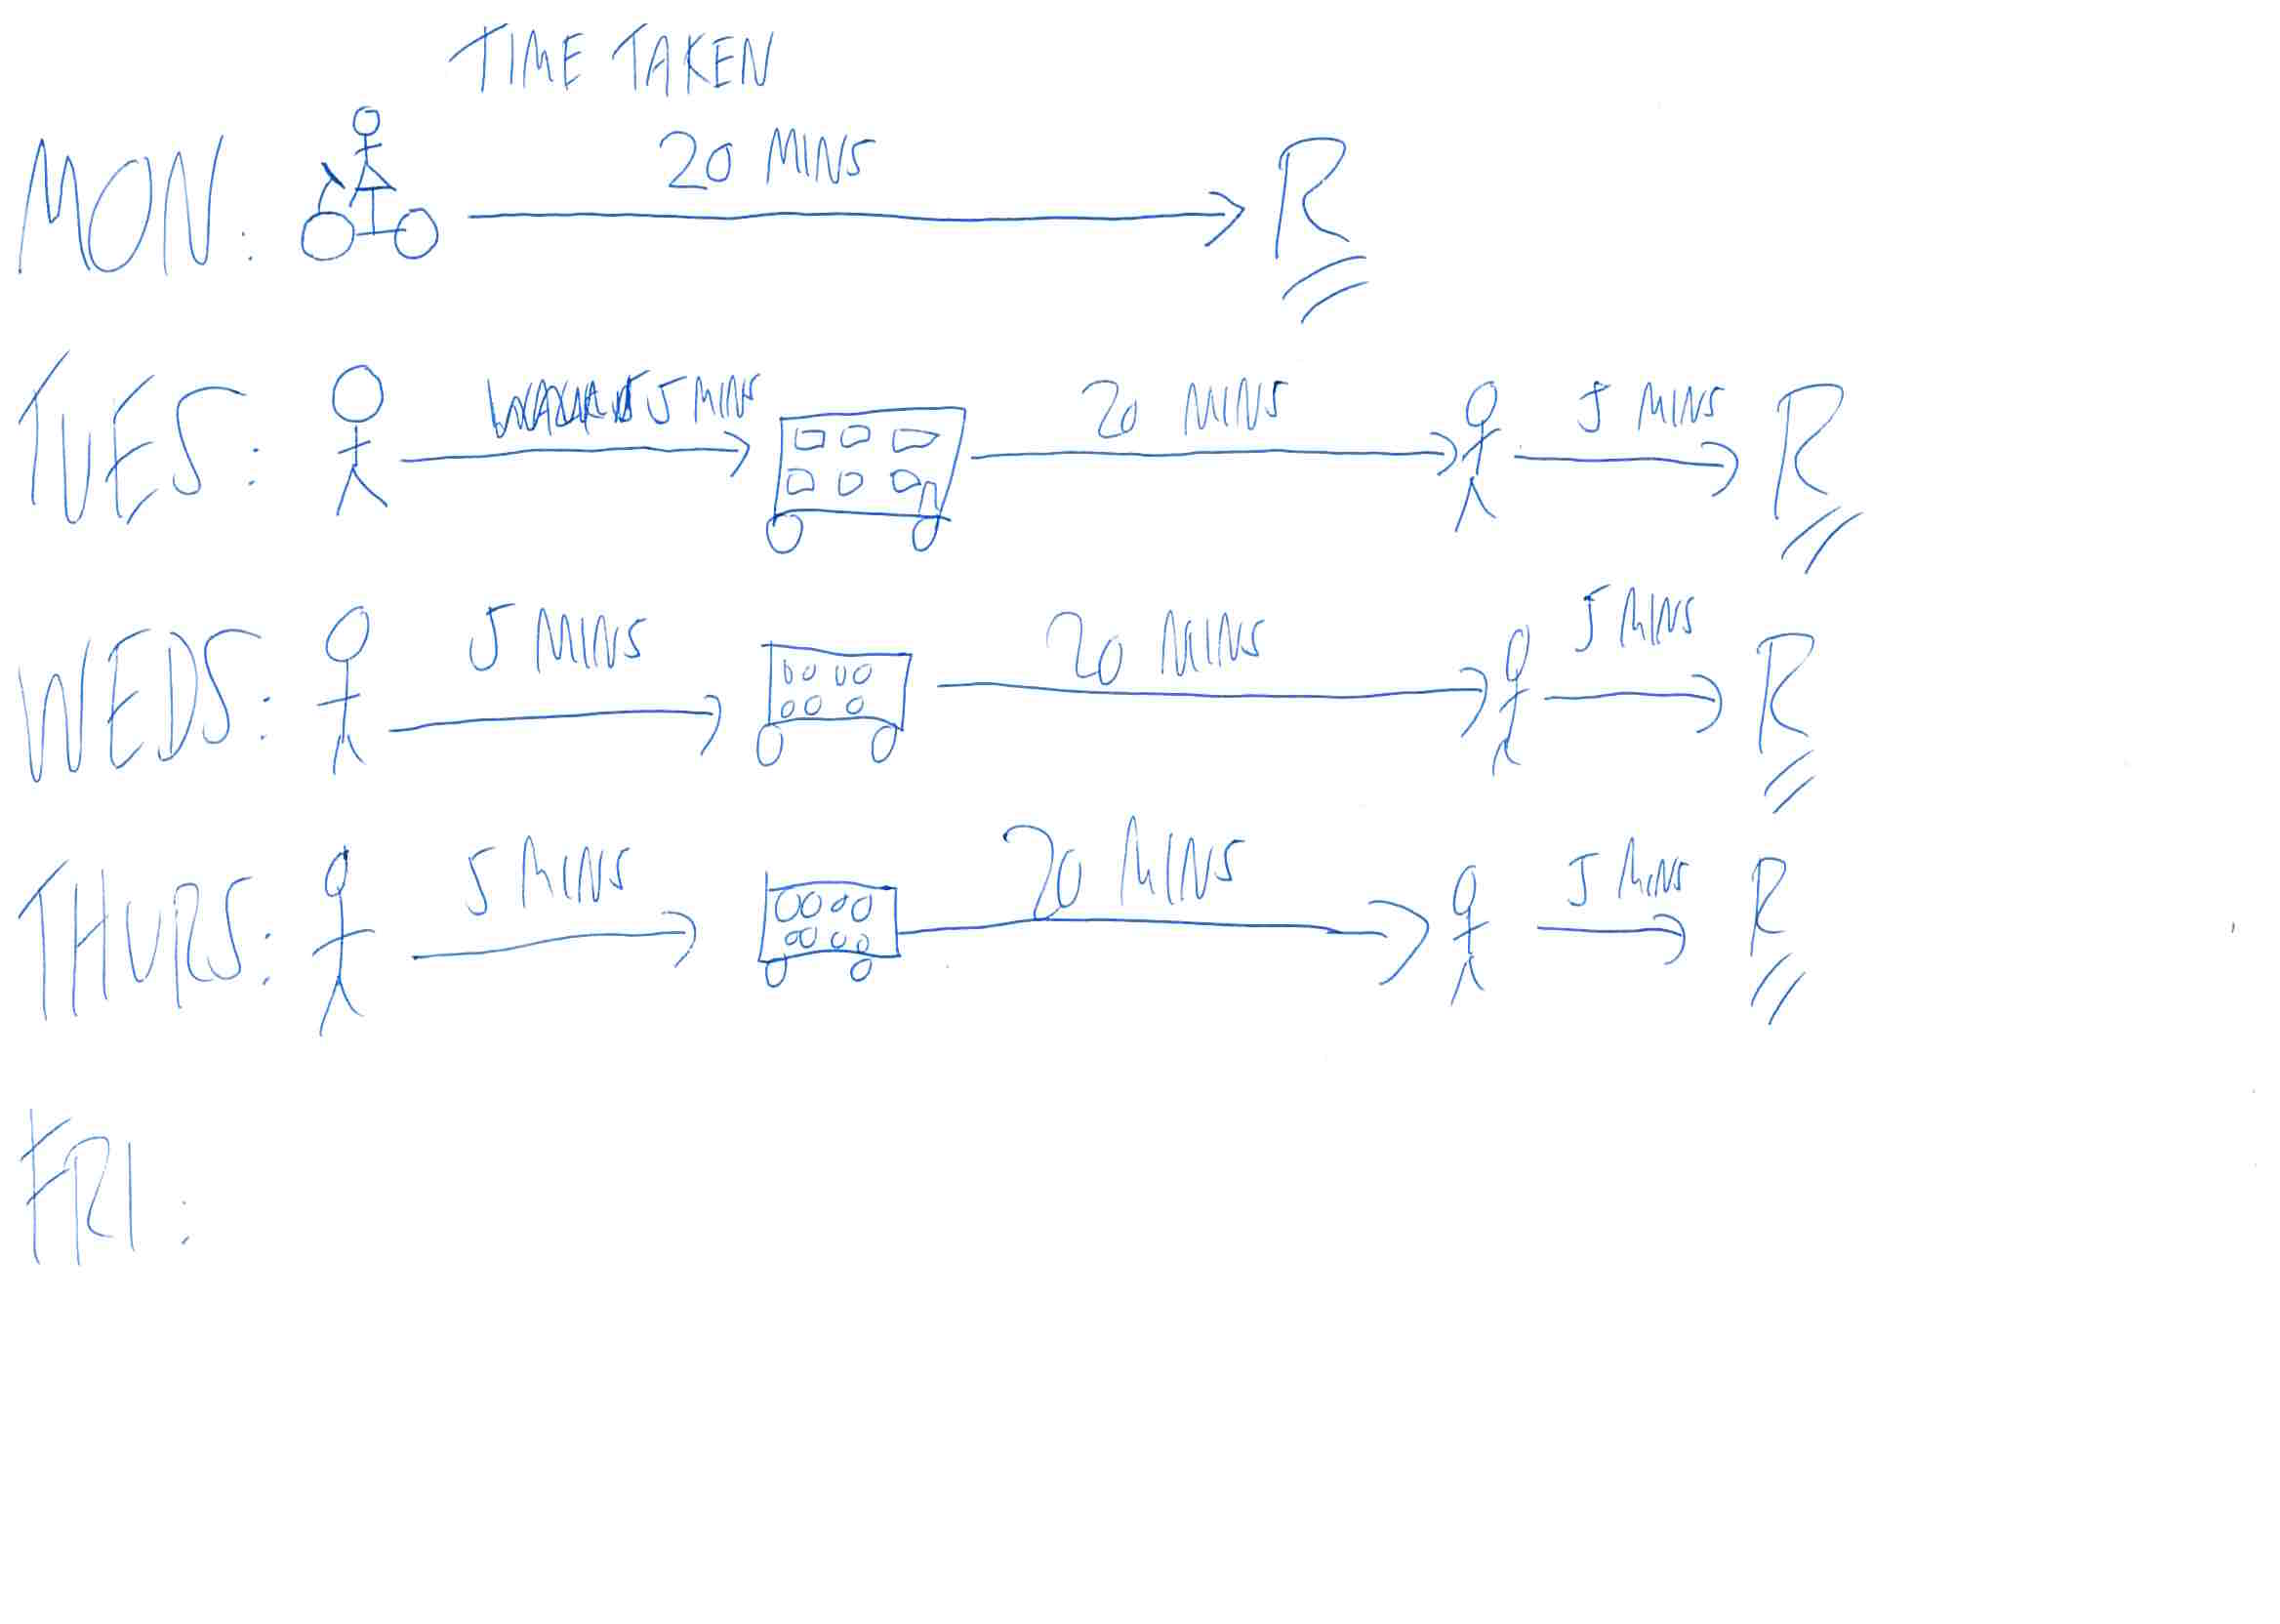 TIME TAKEN
MON: 20 MINS R
TUES: 5 MINS 20 MINS 5 MINS R
WEDS: 5 MINS 20 MINS 5 MINS R
THURS: 5 MINS 20 MINS 5 MINS R
FRI: